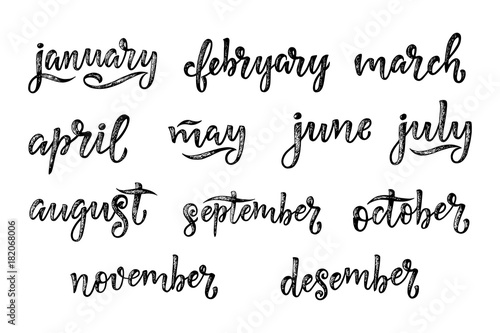 january febryary march
april may june july
august september october
november desember
Adobe Stock | #182068006